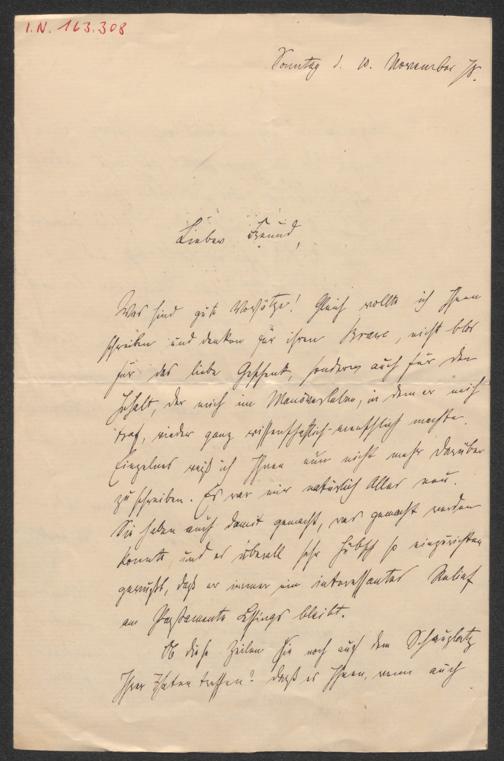 I.N. 163.308
Sonntag d. 10. November 78.
Lieber Freund,
Was sind gute Vorsätze! Gleich wollte ich Ihnen
schreiben und danken für Ihren Brawe, nicht blos
für das liebe Geschenk, sondern auch für den
Inhalt, der mich im Manöverleben, in dem er mich
traf, wieder ganz wissenschaftlich-menschlich machte.
Einzelnes weiß ich Ihnen nun nicht mehr darüber
zu schreiben. Es war mir natürlich Alles neu.
Sie haben auch damit gemacht, was gemacht werden
konnte und es überall sehr hübsch so einzurichten
gewußt, daß er immer ein interessantes Relief
am Postamente Lessings bleibt.
Ob diese Zeilen Sie noch auf dem Schauplatz
Ihrer Thaten treffen? Daß es Ihnen, wenn auch